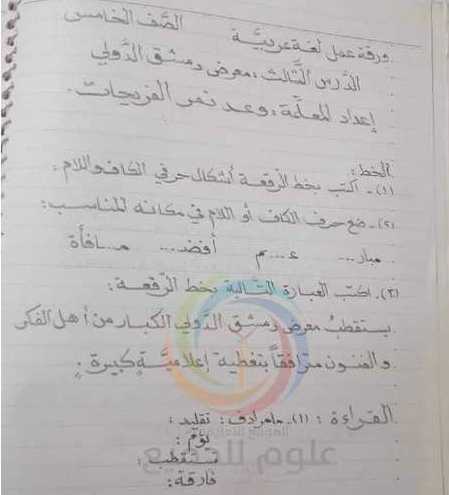 ورقة عمل لغة عربيَّة الصَّف الخامس
الدَّرس الثَّالث: معرض دمشق الدَّولي
إعداد المعلّمة: وعد نمر الفريجات.
الخط:
(١)- اكتب بخط الرّقعة أشكال حرفي الكاف واللام:
(٢)- ضع حرف الكاف أو اللام في مكانه المناسب:
مبار... عـ...ـم أفضـ... مـ...ـافأة
(٣)- اكتب العبارة التَّالية بخط الرّقعة:
يستقطبُ معرض دمشق الدَّولي الكبار من أهل الفكر
والفنون مترافقاً بتغطيةٍ إعلاميَّةٍ كبيرة.
القراءة: (١)- مامرادف: تقليد:
تؤم:
تستقطب:
فارقة:
علوم للجميع